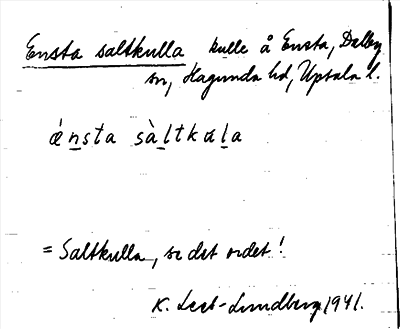 Ensta saltkulla kulle å Ensta, Dalby
sn, Hagunda hd, Uppsala l.
énsta sàltkúla
= Saltkulla, se det ordet!
K. Leet-Lundberg 1941.